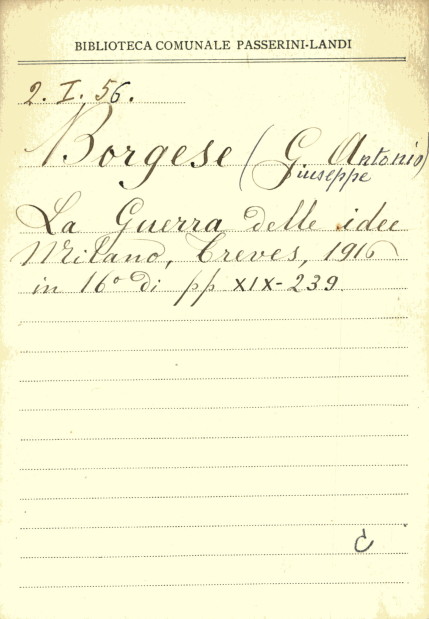 BIBLIOTECA COMUNALE PASSERINI-LANDI
2. I. 56.
Borgese (G. Antonio)
iuseppe
La Guerra delle idee
Milano, Treves, 1916
in 16° di pp XIX-239.
C